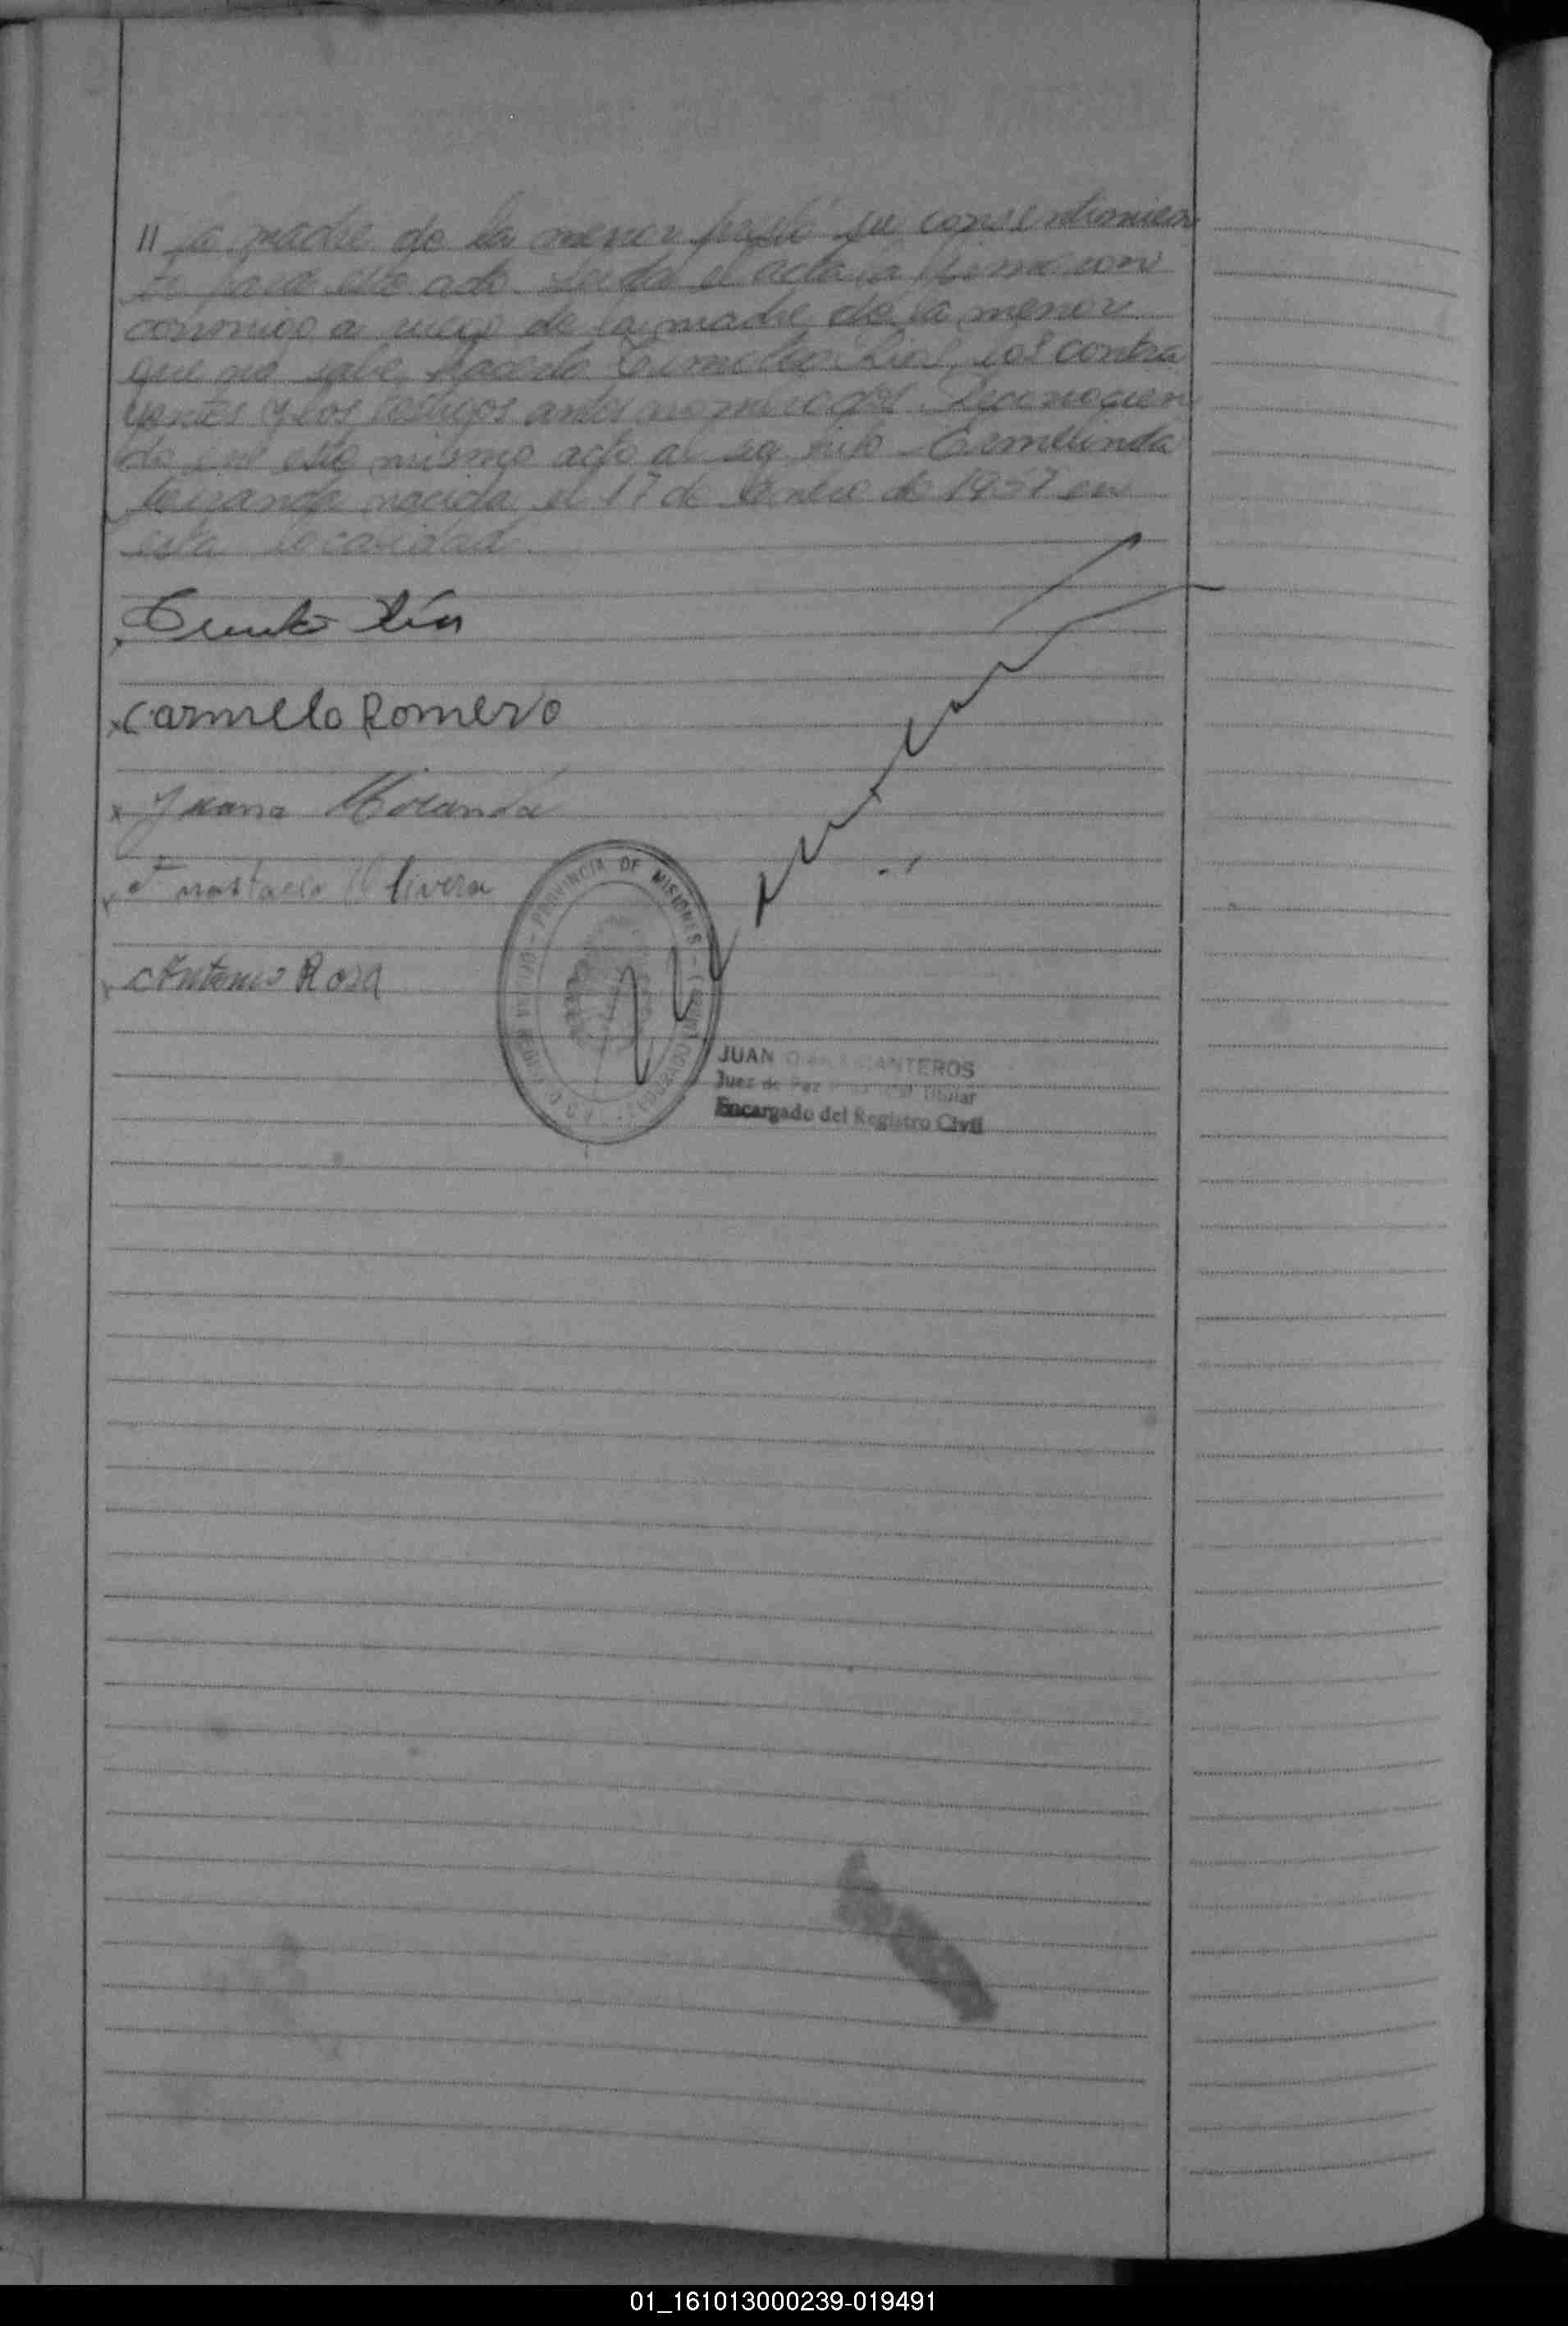 11 la madre de la menor prestó su consentimien
to para este acto. Leida el acta la firmaron
conmigo a ruego de la madre de la menor
que no sabe hacerlo Rios, los contra
yentes y los testigos antes nombrados. Reconocien
do en este mismo acto a su Ermelinda
nacida el 17 de Enero de 1957 en
esta localidad.
x Carmelo Romero
x Juana Miranda
x Anastacio Olivera
x Antonio Rosa
PROVINCIA DE MISIONES
JUAN CANTEROS
Juez de Paz Titular
Encargado del Registro Civil
01_161013000239-019491